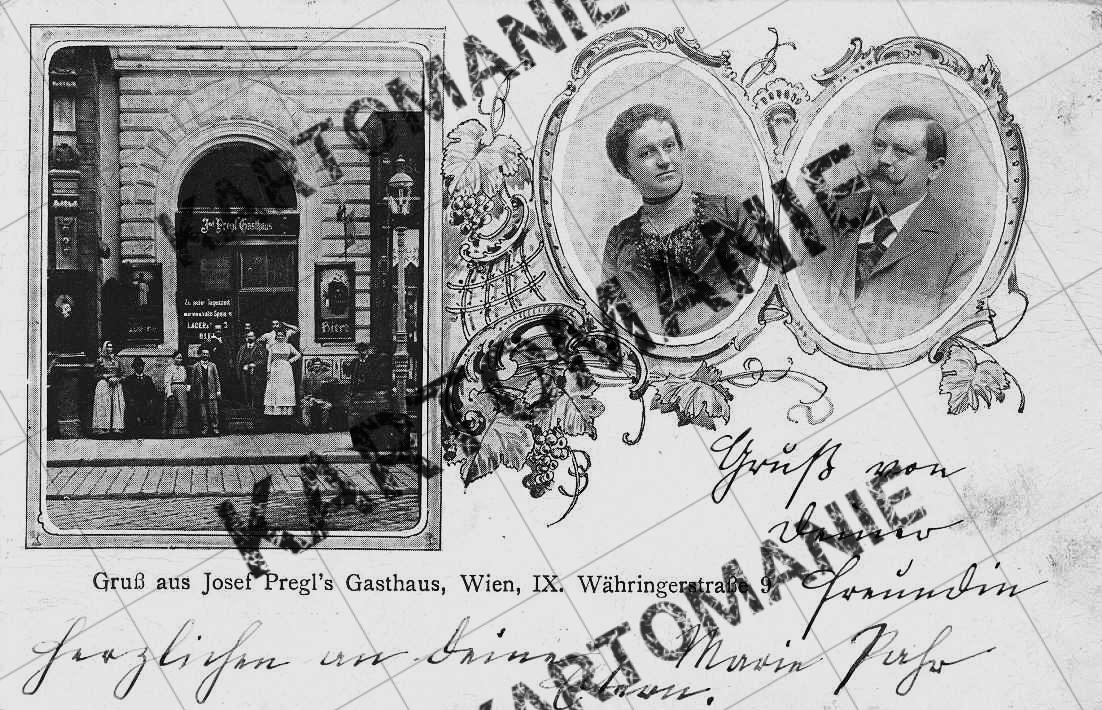 KARTOMANIE
KARTOMANIE
KARTOMANIE
KARTOMANIE
Jos. Pregl Gasthaus
Zu jeder Tageszeit
LAGER
Bier
Gruß aus Josef Pregl's Gasthaus, Wien, IX. Währingerstraße 9
Gruß von
Deiner
Freundin
Marie Pahr
Herzlichen an Deine
Eltern.